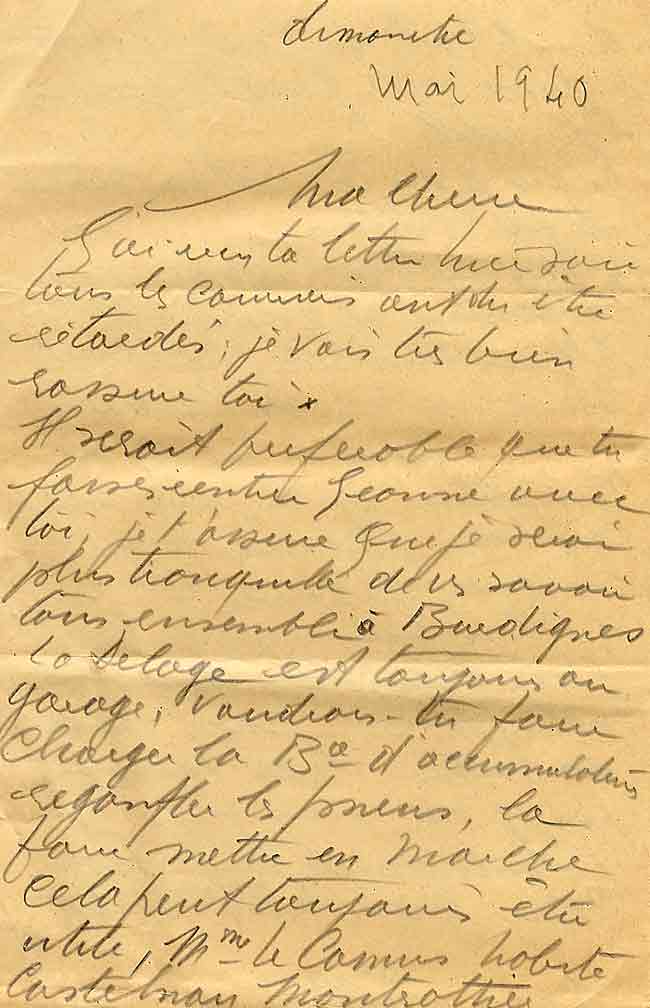 dimanche
Mai 1940
Ma Chérie
J'ai reçu ta lettre hier soir
tous les courriers ont du être
retardés, je vais tres bien
rassure toi x
Il serait preferable que tu
fasses rentrer Jeanne avec
toi, je t'assure que je serai
plus tranquille de vs savoir
tous ensemble à Burdignes
La Delage est toujours au
garage, voudrais-tu faire
charger la Bie d'accumulateurs
regonfler les pneus, la
faire mettre en marche
cela peut toujours être
utile, Mme le Camus habite
Castelnau Montratier